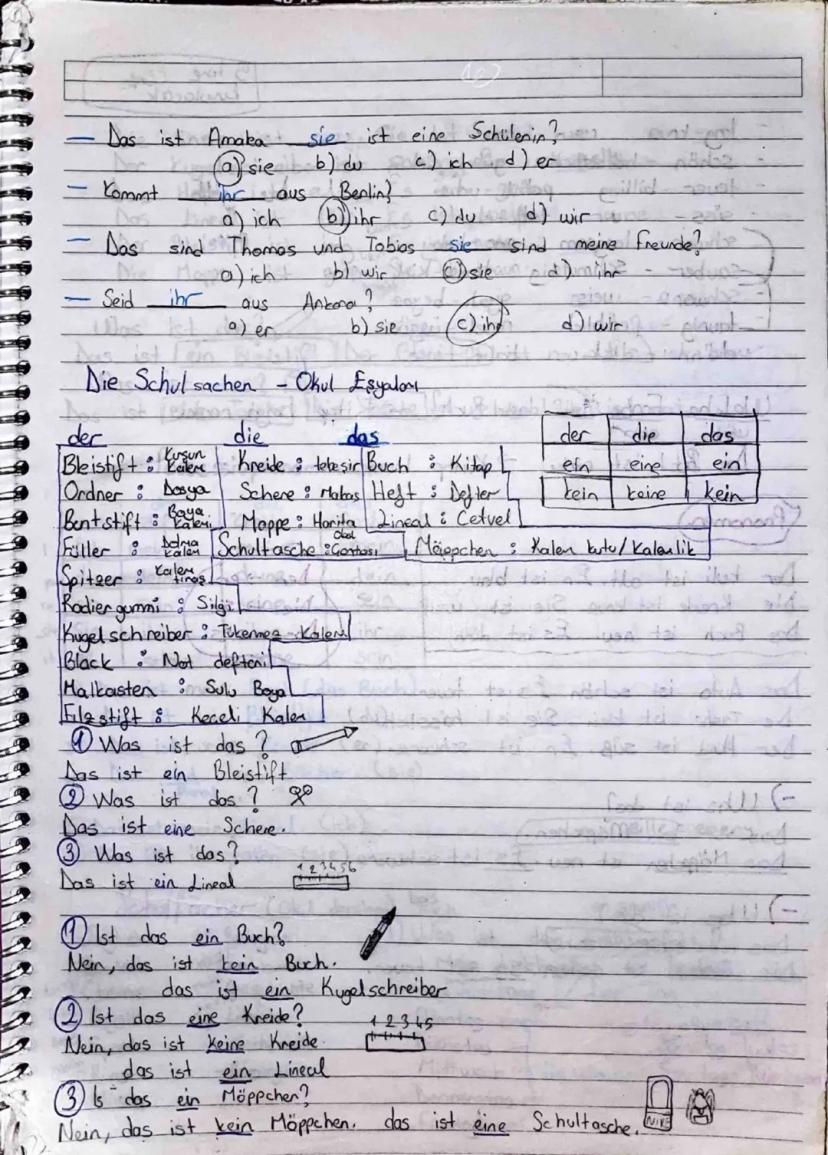 — Das ist Amaka sie ist eine Schülenin?
a) sie b) du c) ich d) er
— Kommt ihr aus Berlin?
a) ich b) ihr c) du d) wir
— Das sind Thomas und Tobias sie sind meine Freunde?
a) ich b) wir c) sie d) ihr
— Seid ihr aus Ankara?
a) er b) sie c) ihr d) wir
Die Schulsachen - Okul Eşyaları
der die das
der die das
Bleistift : Kurşun Kalem Kreide : tebeşir Buch : Kitap
ein eine ein
Ordner : Dosya Schere : Makas Heft : Defter
kein keine kein
Bentstift : Boya Kalemi Mappe : Harita Lineal : Cetvel
Füller : Dolma kalem Schultasche : Okul Çantası Mäppchen : Kalem kutu/Kalemlik
Spitzer : Kalem tıraş
Radiergummi : Silgi
Kugelschreiber : Tükenmez Kalem
Black : Not defteri
Malkasten : Sulu Boya
Filzstift : Keçeli Kalem
① Was ist das?
Das ist ein Bleistift
② Was ist das?
Das ist eine Schere.
③ Was ist das?
1 2 3 4 5 6
Das ist ein Lineal
① Ist das ein Buch?
Nein, das ist kein Buch.
das ist ein Kugelschreiber
② Ist das eine Kreide?
1 2 3 4 5
Nein, das ist keine Kreide.
das ist ein Lineal
③ Is das ein Mäppchen?
Nein, das ist kein Mäppchen. das ist eine Schultasche.
NIKE